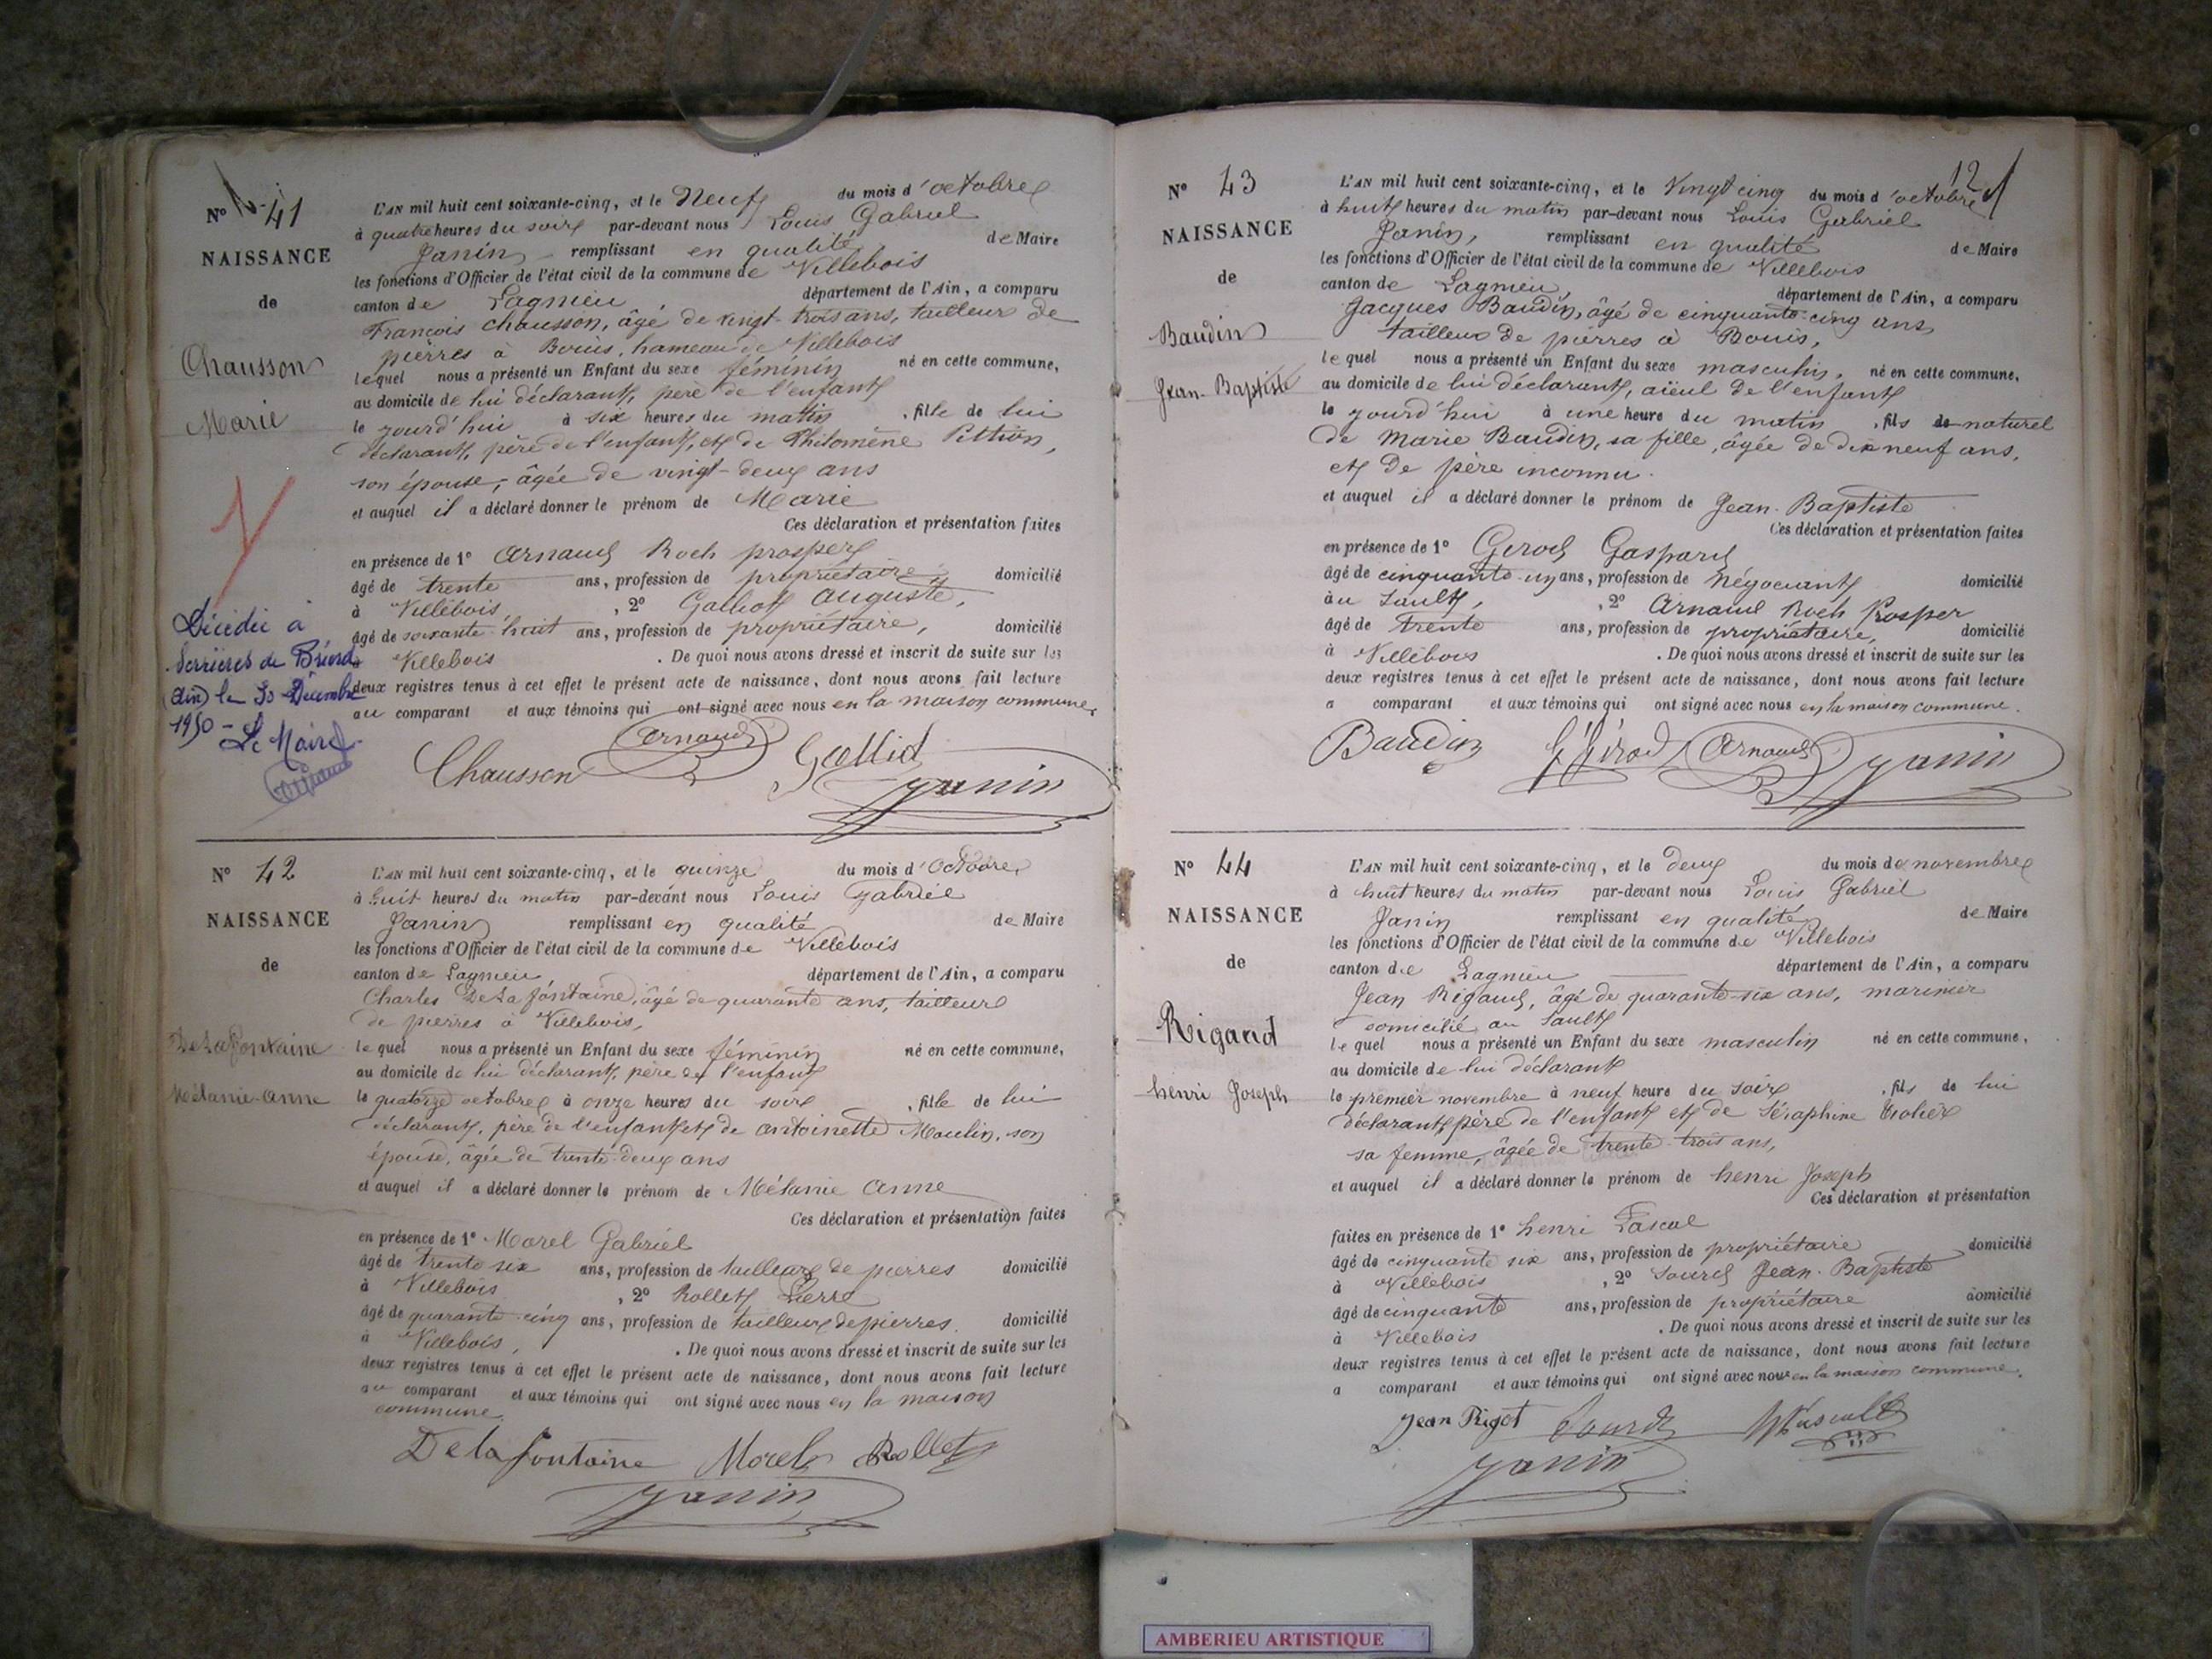 N° 41
NAISSANCE
de
Chausson
Marie
L'AN mil huit cent soixante-cinq, et le Neuf du mois d'octobre
à quatre heures du soir par-devant nous Louis Gabriel
Janin, remplissant en qualité de Maire
les fonctions d'Officier de l'état civil de la commune de Villebois
canton de Lagnieu, département de l'Ain, a comparu
François Chausson, âgé de vingt-trois ans, tailleur de
pierres à Bouis, hameau de Villebois
lequel nous a présenté un Enfant du sexe féminin né en cette commune,
au domicile de lui déclarant, père de l'enfant
le jourd'hui à six heures du matin, fille de lui
déclarant, père de l'enfant, et de Philomène Pittion,
son épouse, âgée de vingt-deux ans
et auquel il a déclaré donner le prénom de Marie
Ces déclaration et présentation faites
en présence de 1° Arnaud Roch prosper
âgé de trente ans, profession de propriétaire domicilié
à Villebois, 2° Galliot Auguste,
âgé de soixante-huit ans, profession de propriétaire, domicilié
à Villebois. De quoi nous avons dressé et inscrit de suite sur les
deux registres tenus à cet effet le présent acte de naissance, dont nous avons fait lecture
au comparant et aux témoins qui ont signé avec nous en la maison commune.
Chausson Arnaud Janin
Décédée à
Serrières de Briord
(Ain) le 30 Décembre
1950 - Le Maire
N° 42
NAISSANCE
de
De La fontaine
Mélanie-Anne
L'AN mil huit cent soixante-cinq, et le quinze du mois d'Octobre
à huit heures du matin par-devant nous Louis Gabriel
Janin remplissant en qualité de Maire
les fonctions d'Officier de l'état civil de la commune de Villebois
canton de Lagnieu département de l'Ain, a comparu
Charles De La fontaine, âgé de quarante ans, tailleur
de pierres à Villebois,
lequel nous a présenté un Enfant du sexe féminin né en cette commune,
au domicile de lui déclarant, père de l'enfant
le quatorze octobre à onze heures du soir, fille de lui
déclarant, père de l'enfant et de Antoinette Moulin, son
épouse, âgée de trente-deux ans
et auquel il a déclaré donner le prénom de Mélanie Anne
Ces déclaration et présentation faites
en présence de 1° Morel Gabriel
âgé de trente six ans, profession de tailleur de pierres domicilié
à Villebois, 2° Rollet Pierre
âgé de quarante-cinq ans, profession de tailleur de pierres. domicilié
à Villebois, . De quoi nous avons dressé et inscrit de suite sur les
deux registres tenus à cet effet le présent acte de naissance, dont nous avons fait lecture
au comparant et aux témoins qui ont signé avec nous en la maison
commune.
Delafontaine Morel Rollet
Janin
12
N° 43
NAISSANCE
de
Baudin
Jean-Baptiste
L'AN mil huit cent soixante-cinq, et le Vingt cinq du mois d'octobre
à huit heures du matin par-devant nous Louis Gabriel
Janin, remplissant en qualité de Maire
les fonctions d'Officier de l'état civil de la commune de Villebois
canton de Lagnieu, département de l'Ain, a comparu
Jacques Baudin, âgé de cinquante-cinq ans,
tailleur de pierres à Bouis,
lequel nous a présenté un Enfant du sexe masculin, né en cette commune,
au domicile de lui déclarant, aïeul de l'enfant
le jourd'hui à une heure du matin, fils de naturel
de Marie Baudin, sa fille, âgée de dix neuf ans,
et de père inconnu.
et auquel il a déclaré donner le prénom de Jean-Baptiste
Ces déclaration et présentation faites
en présence de 1° Gerod Gaspard
âgé de cinquante-un ans, profession de Négociant domicilié
au Sault, 2° Arnaud Roch Prosper
âgé de trente ans, profession de propriétaire, domicilié
à Villebois. De quoi nous avons dressé et inscrit de suite sur les
deux registres tenus à cet effet le présent acte de naissance, dont nous avons fait lecture
a comparant et aux témoins qui ont signé avec nous en la maison commune.
Baudin Girod Arnaud Janin
N° 44
NAISSANCE
de
Rigaud
henri Joseph
L'AN mil huit cent soixante-cinq, et le deux du mois de novembre
à huit heures du matin par-devant nous Louis Gabriel
Janin remplissant en qualité de Maire
les fonctions d'Officier de l'état civil de la commune de Villebois
canton de Lagnieu département de l'Ain, a comparu
Jean Rigaud, âgé de quarante-six ans, marinier
domicilié au Sault
lequel nous a présenté un Enfant du sexe masculin né en cette commune,
au domicile de lui déclarant
le premier novembre à neuf heure du soir, fils de lui
déclarant, père de l'enfant et de Séraphine
sa femme, âgée de trente-trois ans,
et auquel il a déclaré donner le prénom de henri Joseph
Ces déclaration et présentation
faites en présence de 1° henri Pascal
âgé de cinquante six ans, profession de propriétaire domicilié
à Villebois, 2° Sourd Jean-Baptiste
âgé de cinquante ans, profession de propriétaire domicilié
à Villebois. De quoi nous avons dressé et inscrit de suite sur les
deux registres tenus à cet effet le présent acte de naissance, dont nous avons fait lecture
a comparant et aux témoins qui ont signé avec nous en la maison commune.
Jean Rigot Sourd
Janin
AMBERIEU ARTISTIQUE